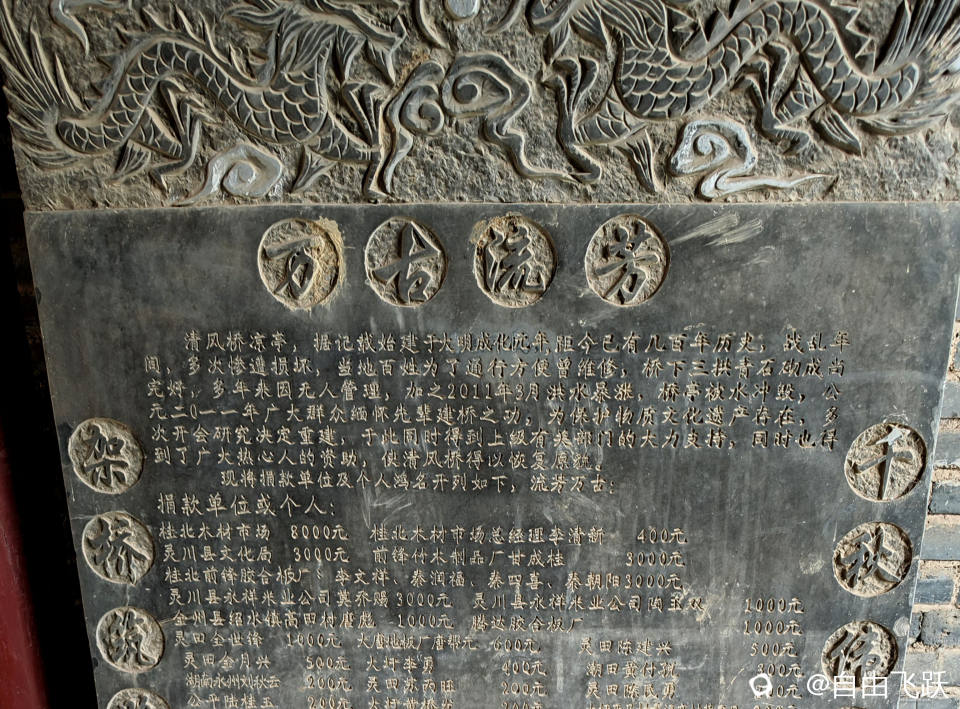 万古流芳
清风桥凉亭,据记载始建于大明成化元年,距今已有几百年历史,战乱年
间,多次惨遭损坏,当地百姓为了通行方便曾维修,桥下三拱青石砌成尚
完好,多年来因无人管理,加之2011年3月洪水暴涨,桥亭被水冲毁,公
元二0一一年广大群众缅怀先辈建桥之功,为保护物质文化遗产存在,多
次开会研究决定重建,于此同时得到上级有关部门的大力支持,同时也得
到了广大热心人的资助,使清风桥得以恢复原貌。
现将捐款单位及个人鸿名开列如下,流芳万古:
捐款单位或个人:
桂北木材市场 8000元 桂北木材市场总经理李清新 400元
灵川县文化局 3000元 前锋竹木制品厂甘成桂 3000元
桂北前锋胶合板厂、李文祥、秦润福、秦四喜、秦朝阳3000元
灵川县永祥米业公司莫乔赐3000元 灵川县永祥米业公司陶玉双 1000元
全州县绍水镇高田村唐彪 1000元 腾达胶合板厂 1000元
灵田全世锋 1000元 大唐地板厂唐帮元 600元 灵田陈建兴 500元
灵田全月兴 500元 大圩李勇 400元 潮田黄付锐 300元
湖南永州刘秋云 200元 灵田苏丙旺 200元 灵田陈氏勇
公平陆桂玉 200元 大圩黄桥发 200元
架桥
千秋
@自由飞跃